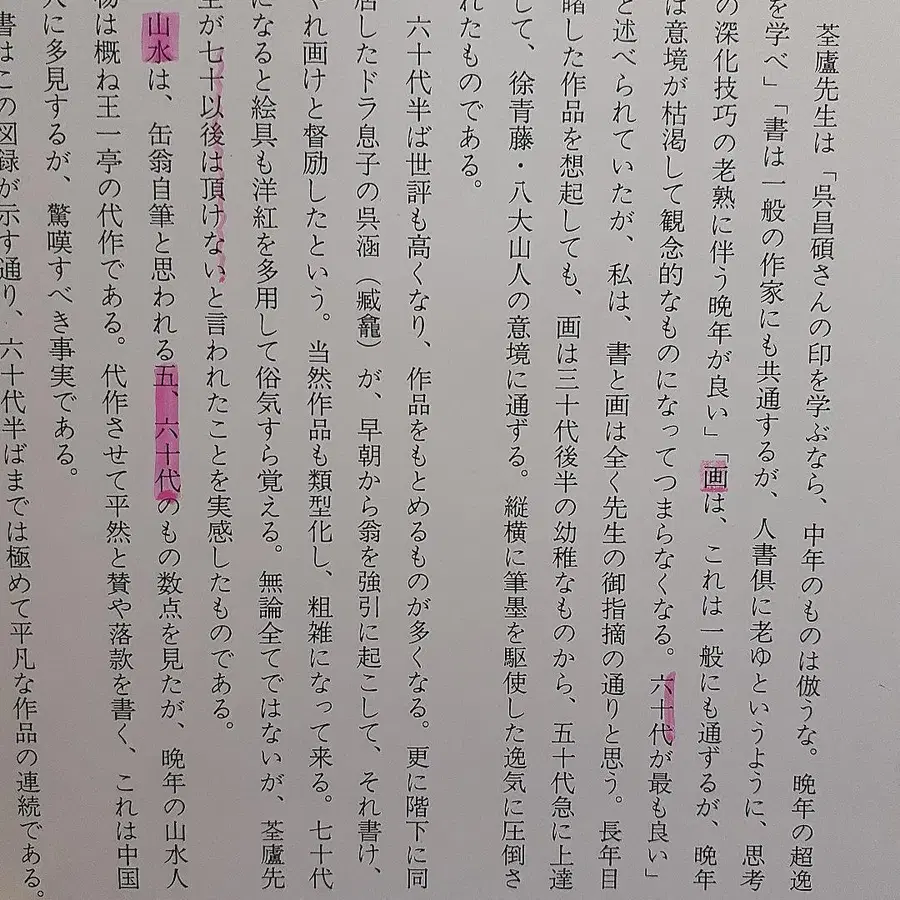 荃廬先生は「呉昌碩さんの印を学ぶなら、中年のものは倣うな。晩年の超逸
を学べ」「書は一般の作家にも共通するが、人書倶に老ゆというように、思考
の深化技巧の老熟に伴う晩年が良い」「画は、これは一般にも通ずるが、晩年
は意境が枯渇して観念的なものになってつまらなくなる。六十代が最も良い」
と述べられていたが、私は、書と画は全く先生の御指摘の通りと思う。長年目
睹した作品を想起しても、画は三十代後半の幼稚なものから、五十代急に上達
して、徐青藤・八大山人の意境に通ずる。縦横に筆墨を駆使した逸気に圧倒さ
れたものである。
六十代半ば世評も高くなり、作品をもとめるものが多くなる。更に階下に同
居したドラ息子の呉涵（臧龕）が、早朝から翁を強引に起こして、それ書け、
やれ画けと督励したという。当然作品も類型化し、粗雑になって来る。七十代
になると絵具も洋紅を多用して俗気すら覚える。無論全てではないが、荃廬先
生が七十以後は頂けないと言われたことを実感したものである。
山水は、缶翁自筆と思われる五、六十代のもの数点を見たが、晩年の山水人
物は概ね王一亭の代作である。代作させて平然と賛や落款を書く、これは中国
人に多見するが、驚嘆すべき事実である。
書はこの図録が示す通り、六十代半ばまでは極めて平凡な作品の連続である。